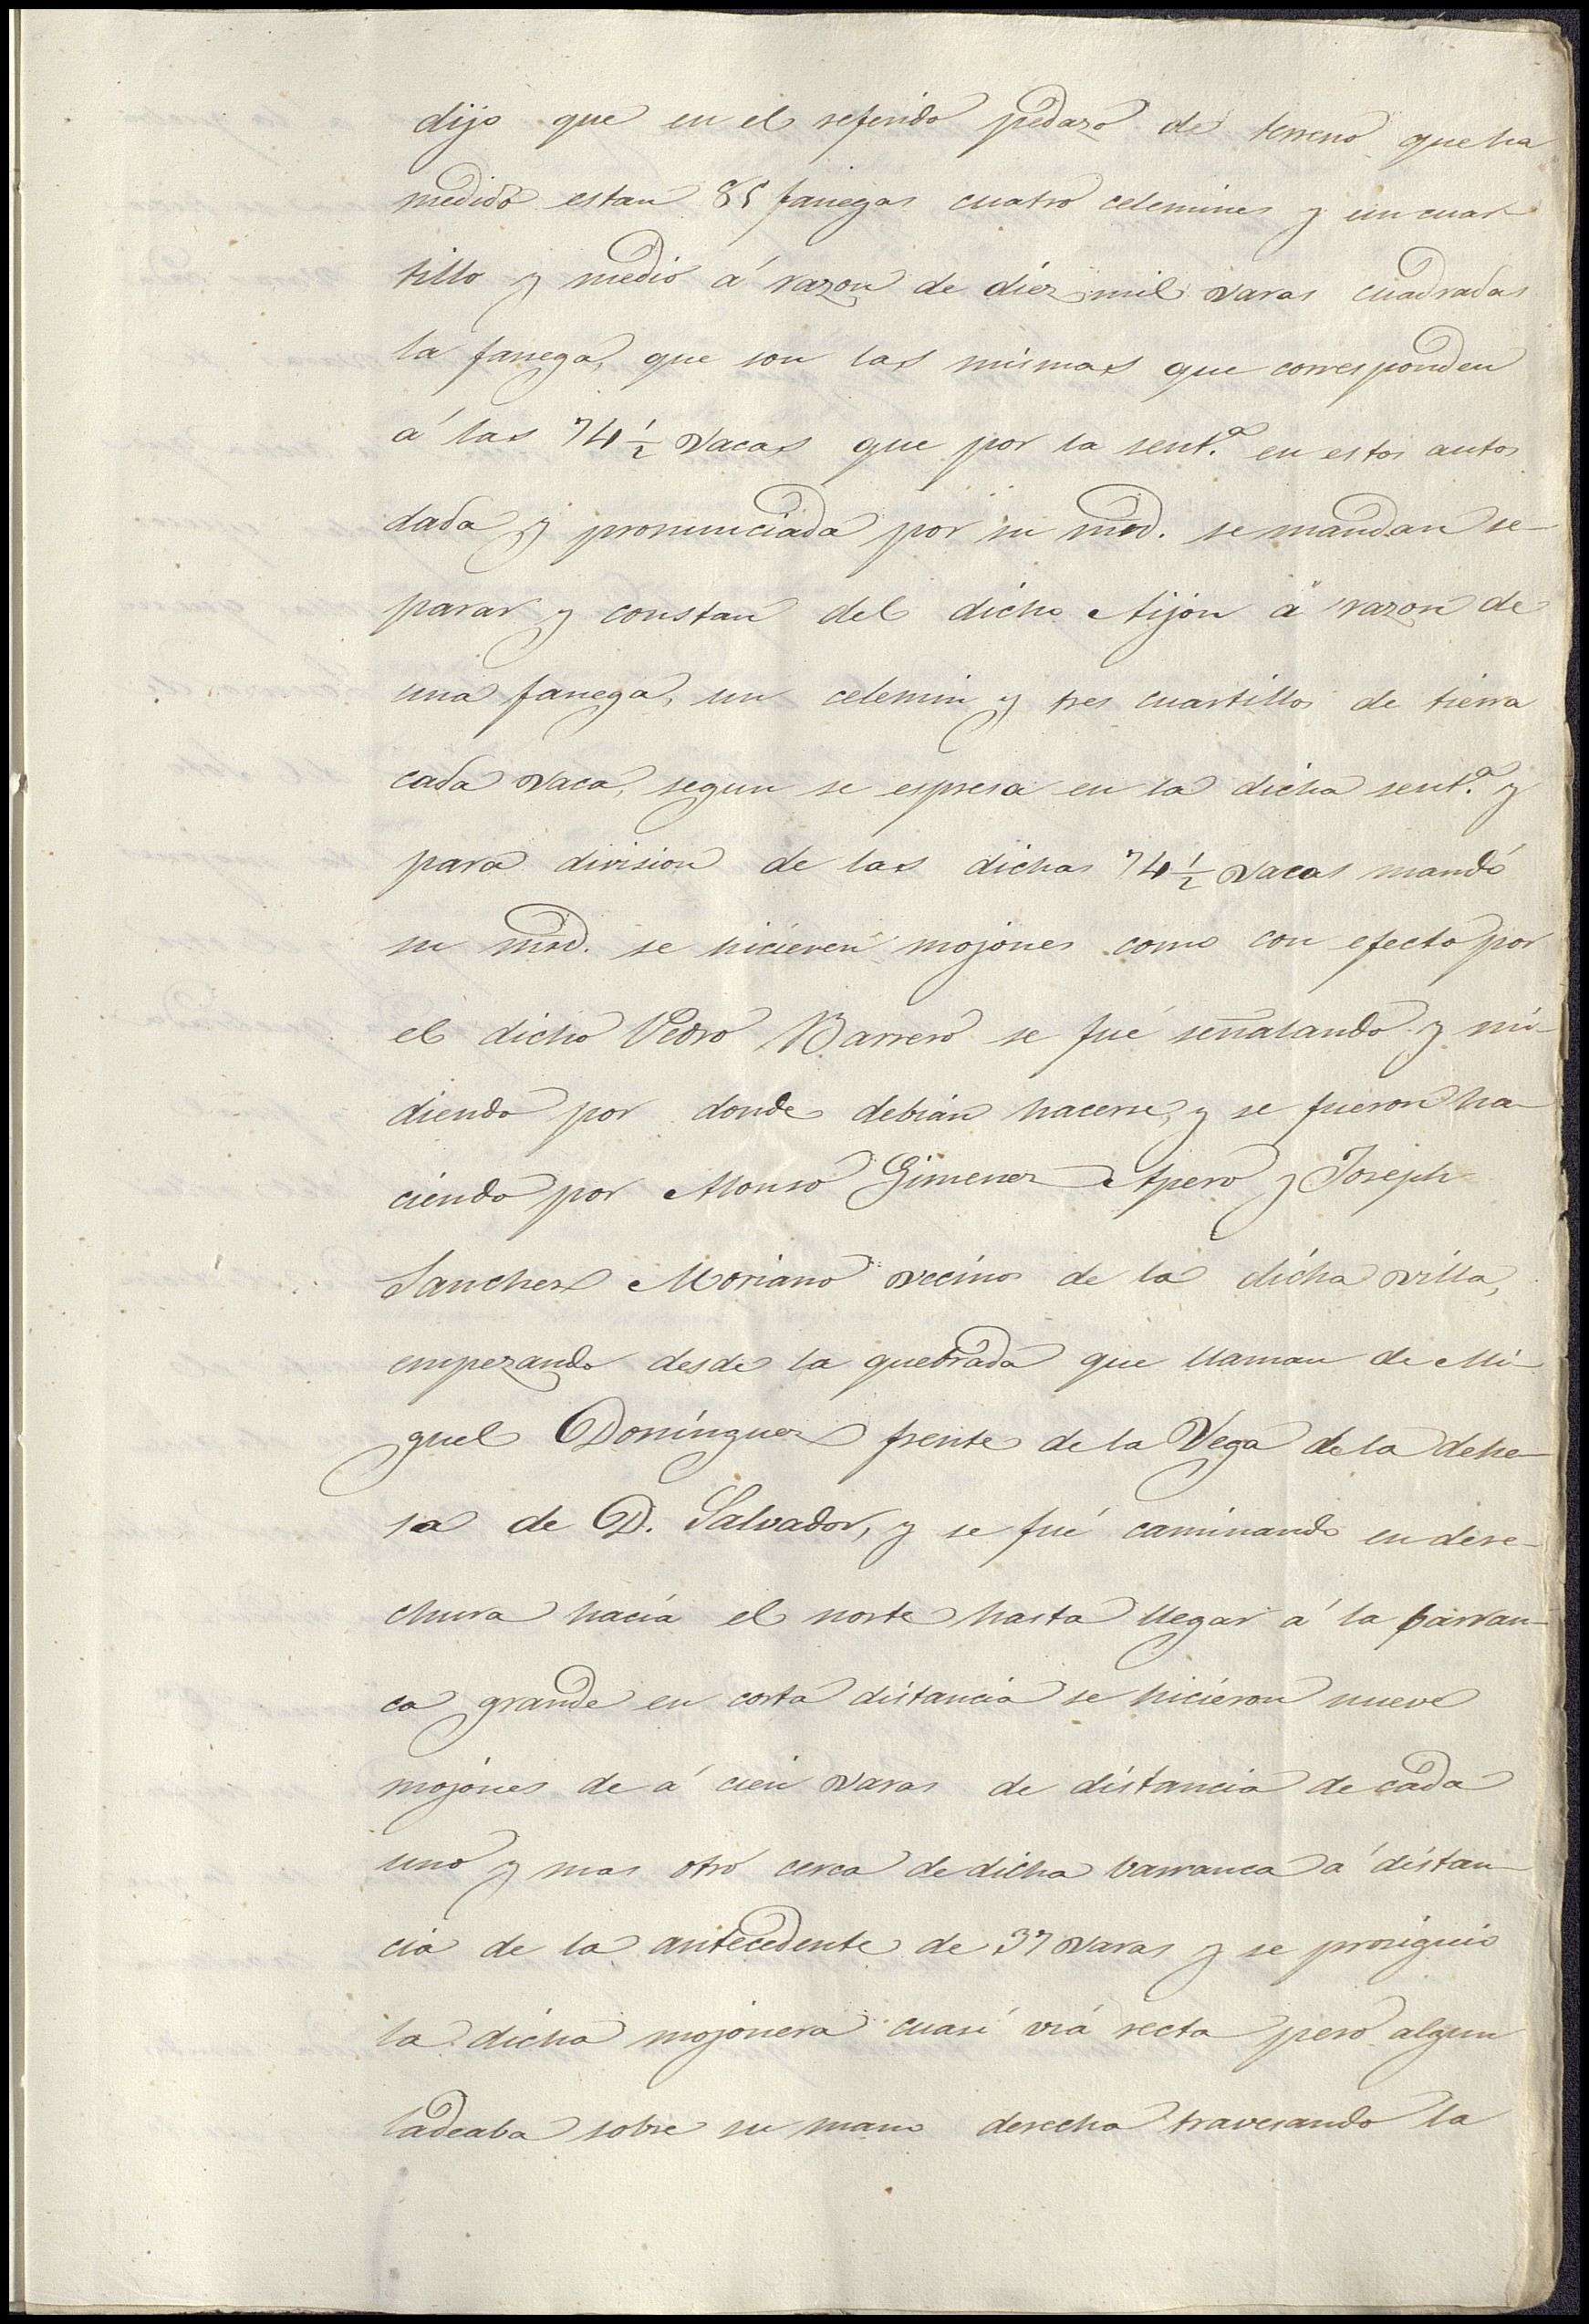 dijo que en el referido pedazo de terreno que ha
medido estan 85 fanegas cuatro celemines y un cuar-
tillo y medio á razon de diez mil varas cuadradas
la fanega, que son las mismas que corresponden
á las 74 ½ vacas que por la sent.ª en estos autos
dada y pronunciada por su mrd. se mandan se-
parar y constan del dicho Aijon á razon de
una fanega, un celemin y tres cuartillos de tierra
cada vaca, segun se espresa en la dicha sent.ª y
para division de las dichas 74 ½ vacas mandó
su mrd. se hicieren mojones como con efecto por
el dicho Pedro Barrero se fué señalando y mi-
diendo por donde debian hacerse, y se fueron ha-
ciendo por Alonso Gimenez Apero y Joseph
Sanchez Moriano vecinos de la dicha villa,
empezando desde la quebrada que llaman de Mi-
guel Dominguez frente de la Vega de la dehe-
sa de D. Salvador, y se fué caminando en dere-
chura hacia el norte hasta llegar á la barran-
ca grande en corta distancia se hicieron nueve
mojones de á cien varas de distancia de cada
uno y mas otro cerca de dicha barranca á distan-
cia de la antecedente de 37 varas y se prosiguio
la dicha mojonera cuasi via recta pero algun
ladeaba sobre su mano derecha travesando la